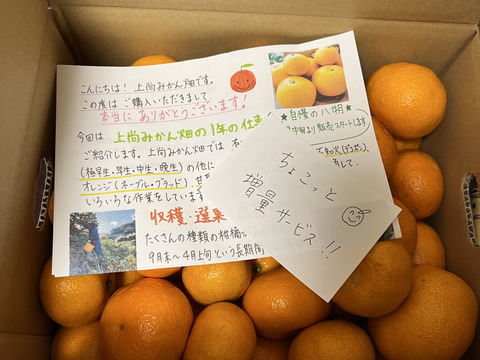 こんにちは！ 上尚みかん畑です。
この度は ご購入いただきまして
本当に ありがとうございます！
今回は 上尚みかん畑の1年の仕事
ご紹介します。上尚みかん畑では、
(極早生・早生・中生・晩生) の他に
オレンジ (ネーブル・ブラッド)、甘
いろいろな作業をしています
収穫・選果
たくさんの種類の柑橘を
9月末〜4月上旬という長期間
★自慢の八朔★
旬より販売スタートします
ちょこっと
増量
サービス!!